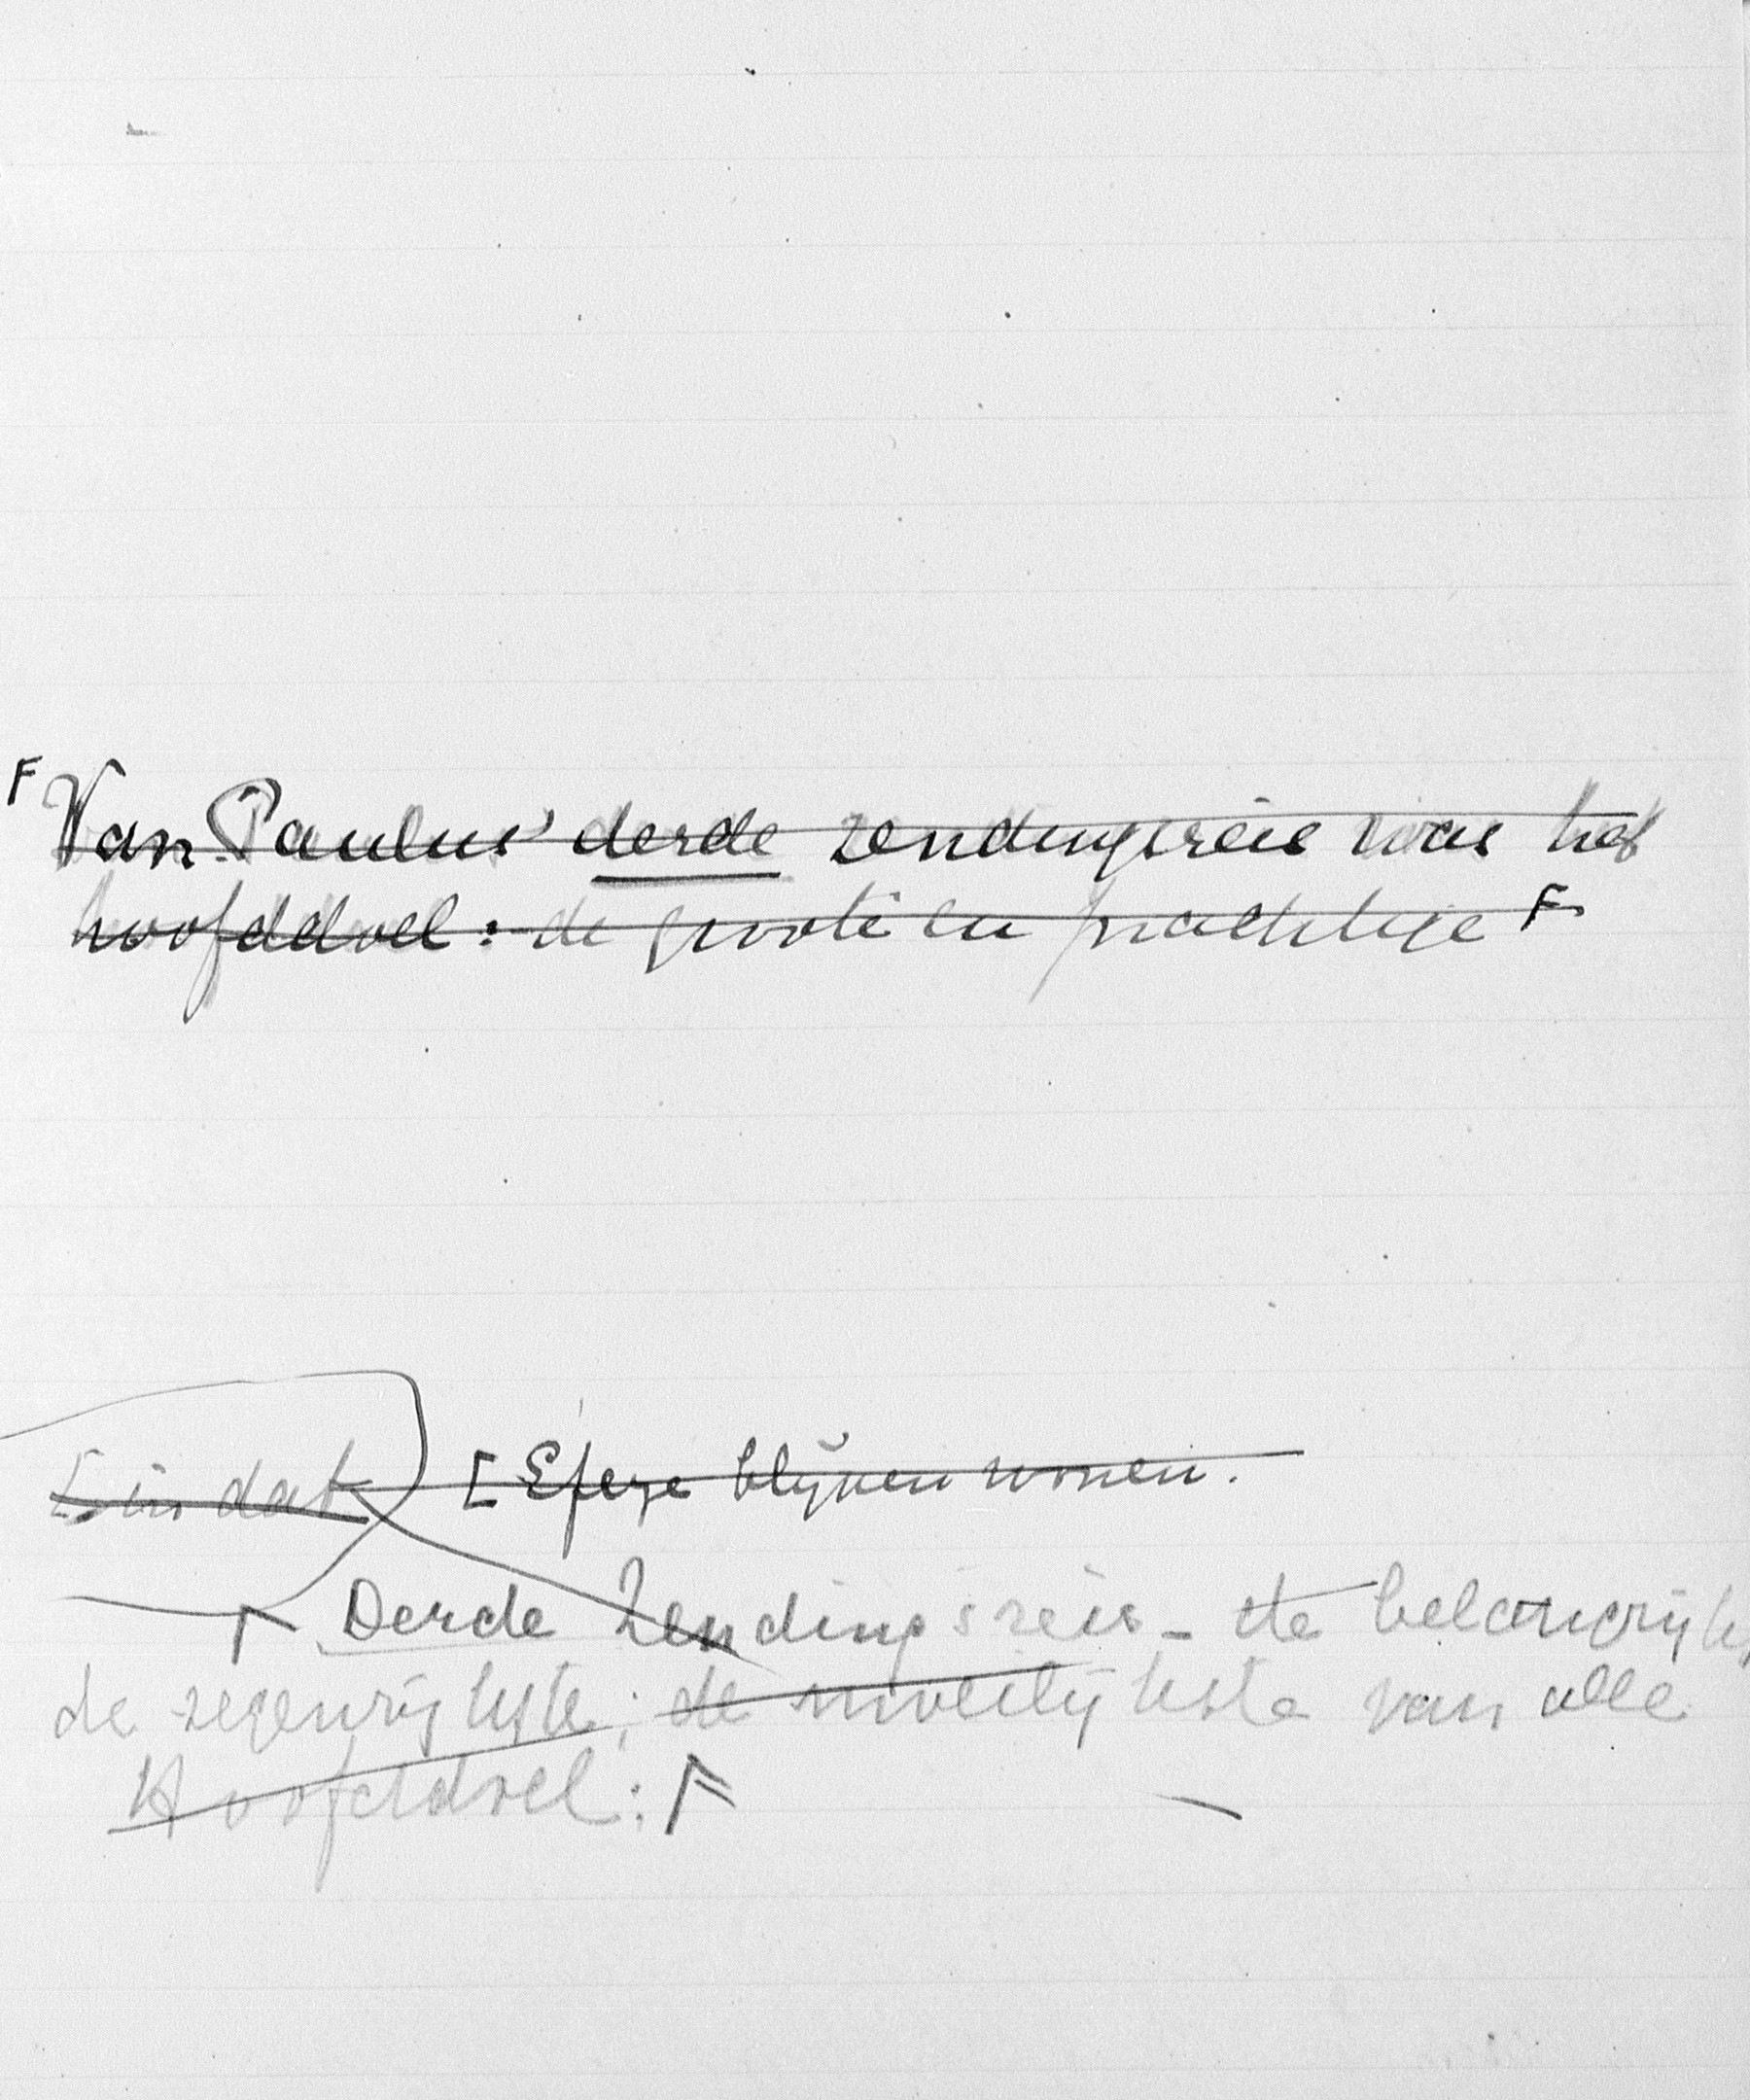 F Van Paulus' derde zendingsreis was het
hoofddoel: de groote en prachtige F
[ in dat [ Efeze blijven wonen.
F Derde Zendingsreis - de belangrijks
de zegenrijkste; de moeilijkste van alle
Hoofddoel: F